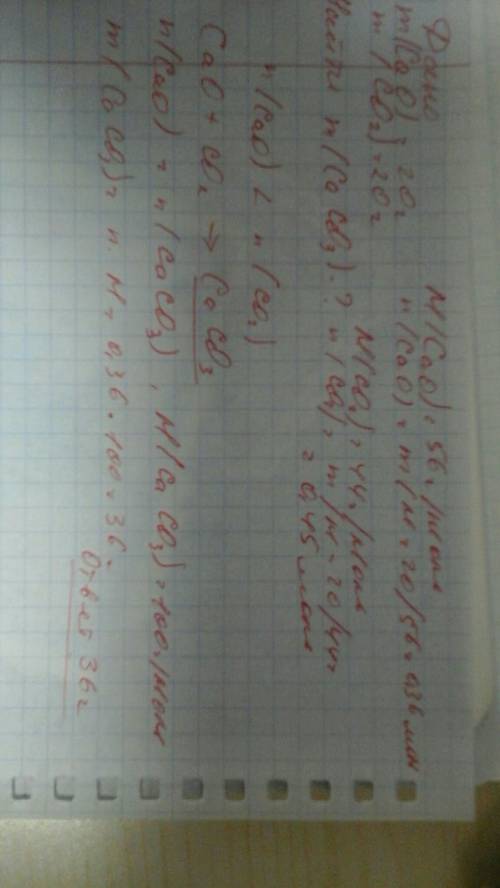 Дано
m(CaO) = 20г
m(CO₂) = 20г
Найти m(CaCO₃)-?
M(CaO) = 56г/моль
n(CaO) = m/M = 20/56 = 0,36 мол
M(CO₂) = 44г/моль
n(CO₂) = m/M = 20/44 =
= 0,45 моль
n(CaO) < n(CO₂)
CaO + CO₂ → CaCO₃
n(CaO) = n(CaCO₃), M(CaCO₃) = 100г/моль
m(CaCO₃) = n·M = 0,36·100 = 36г
Ответ 36г